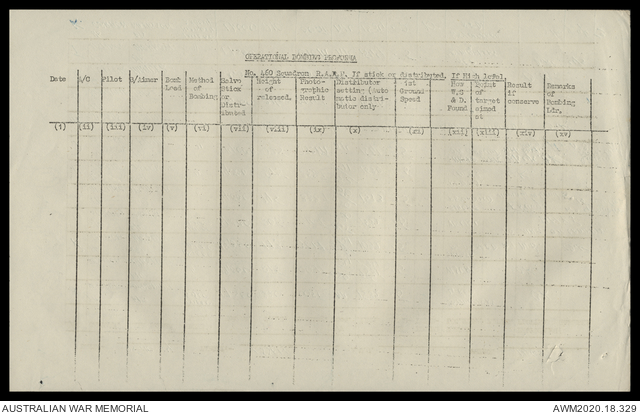 OPERATIONAL BOMBING PROFORMA
No. 460 Squadron R.A.A.F. If stick or distributed. If High level.
Date A/C Pilot B/Aimer Bomb Load Method of Bombing Salvo Stick or Distributed Height of released. Photographic Result Distributor setting (automatic distributor only 1st Ground Speed How W.S & D. Found Point of target aimed at Result if conserve Remarks of Bombing Ldr.
(i) (ii) (iii) (iv) (v) (vi) (vii) (viii) (ix) (x) (xi) (xii) (xiii) (xiv) (xv)
AUSTRALIAN WAR MEMORIAL
AWM2020.18.329